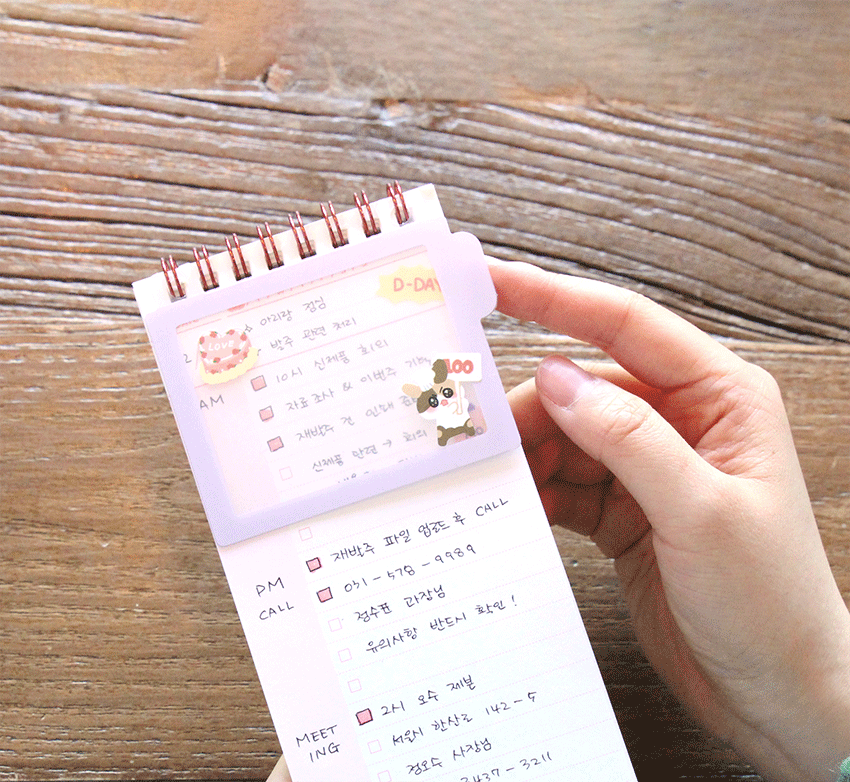 D-DAY
아리랑 점심
LOVE
발주 관련 처리
100
10시 신제품 회의
AM
자료 조사 & 이번주
재발주 건 인쇄
신제품 안건 → 회의
재발주 파일 업로드 후 CALL
PM
CALL
031-578-9989
정수표 과장님
유의사항 반드시 확인!
MEET
ING
2시 오수 제본
서울시 한산로 142-5
정오수 사장님
3437-3211